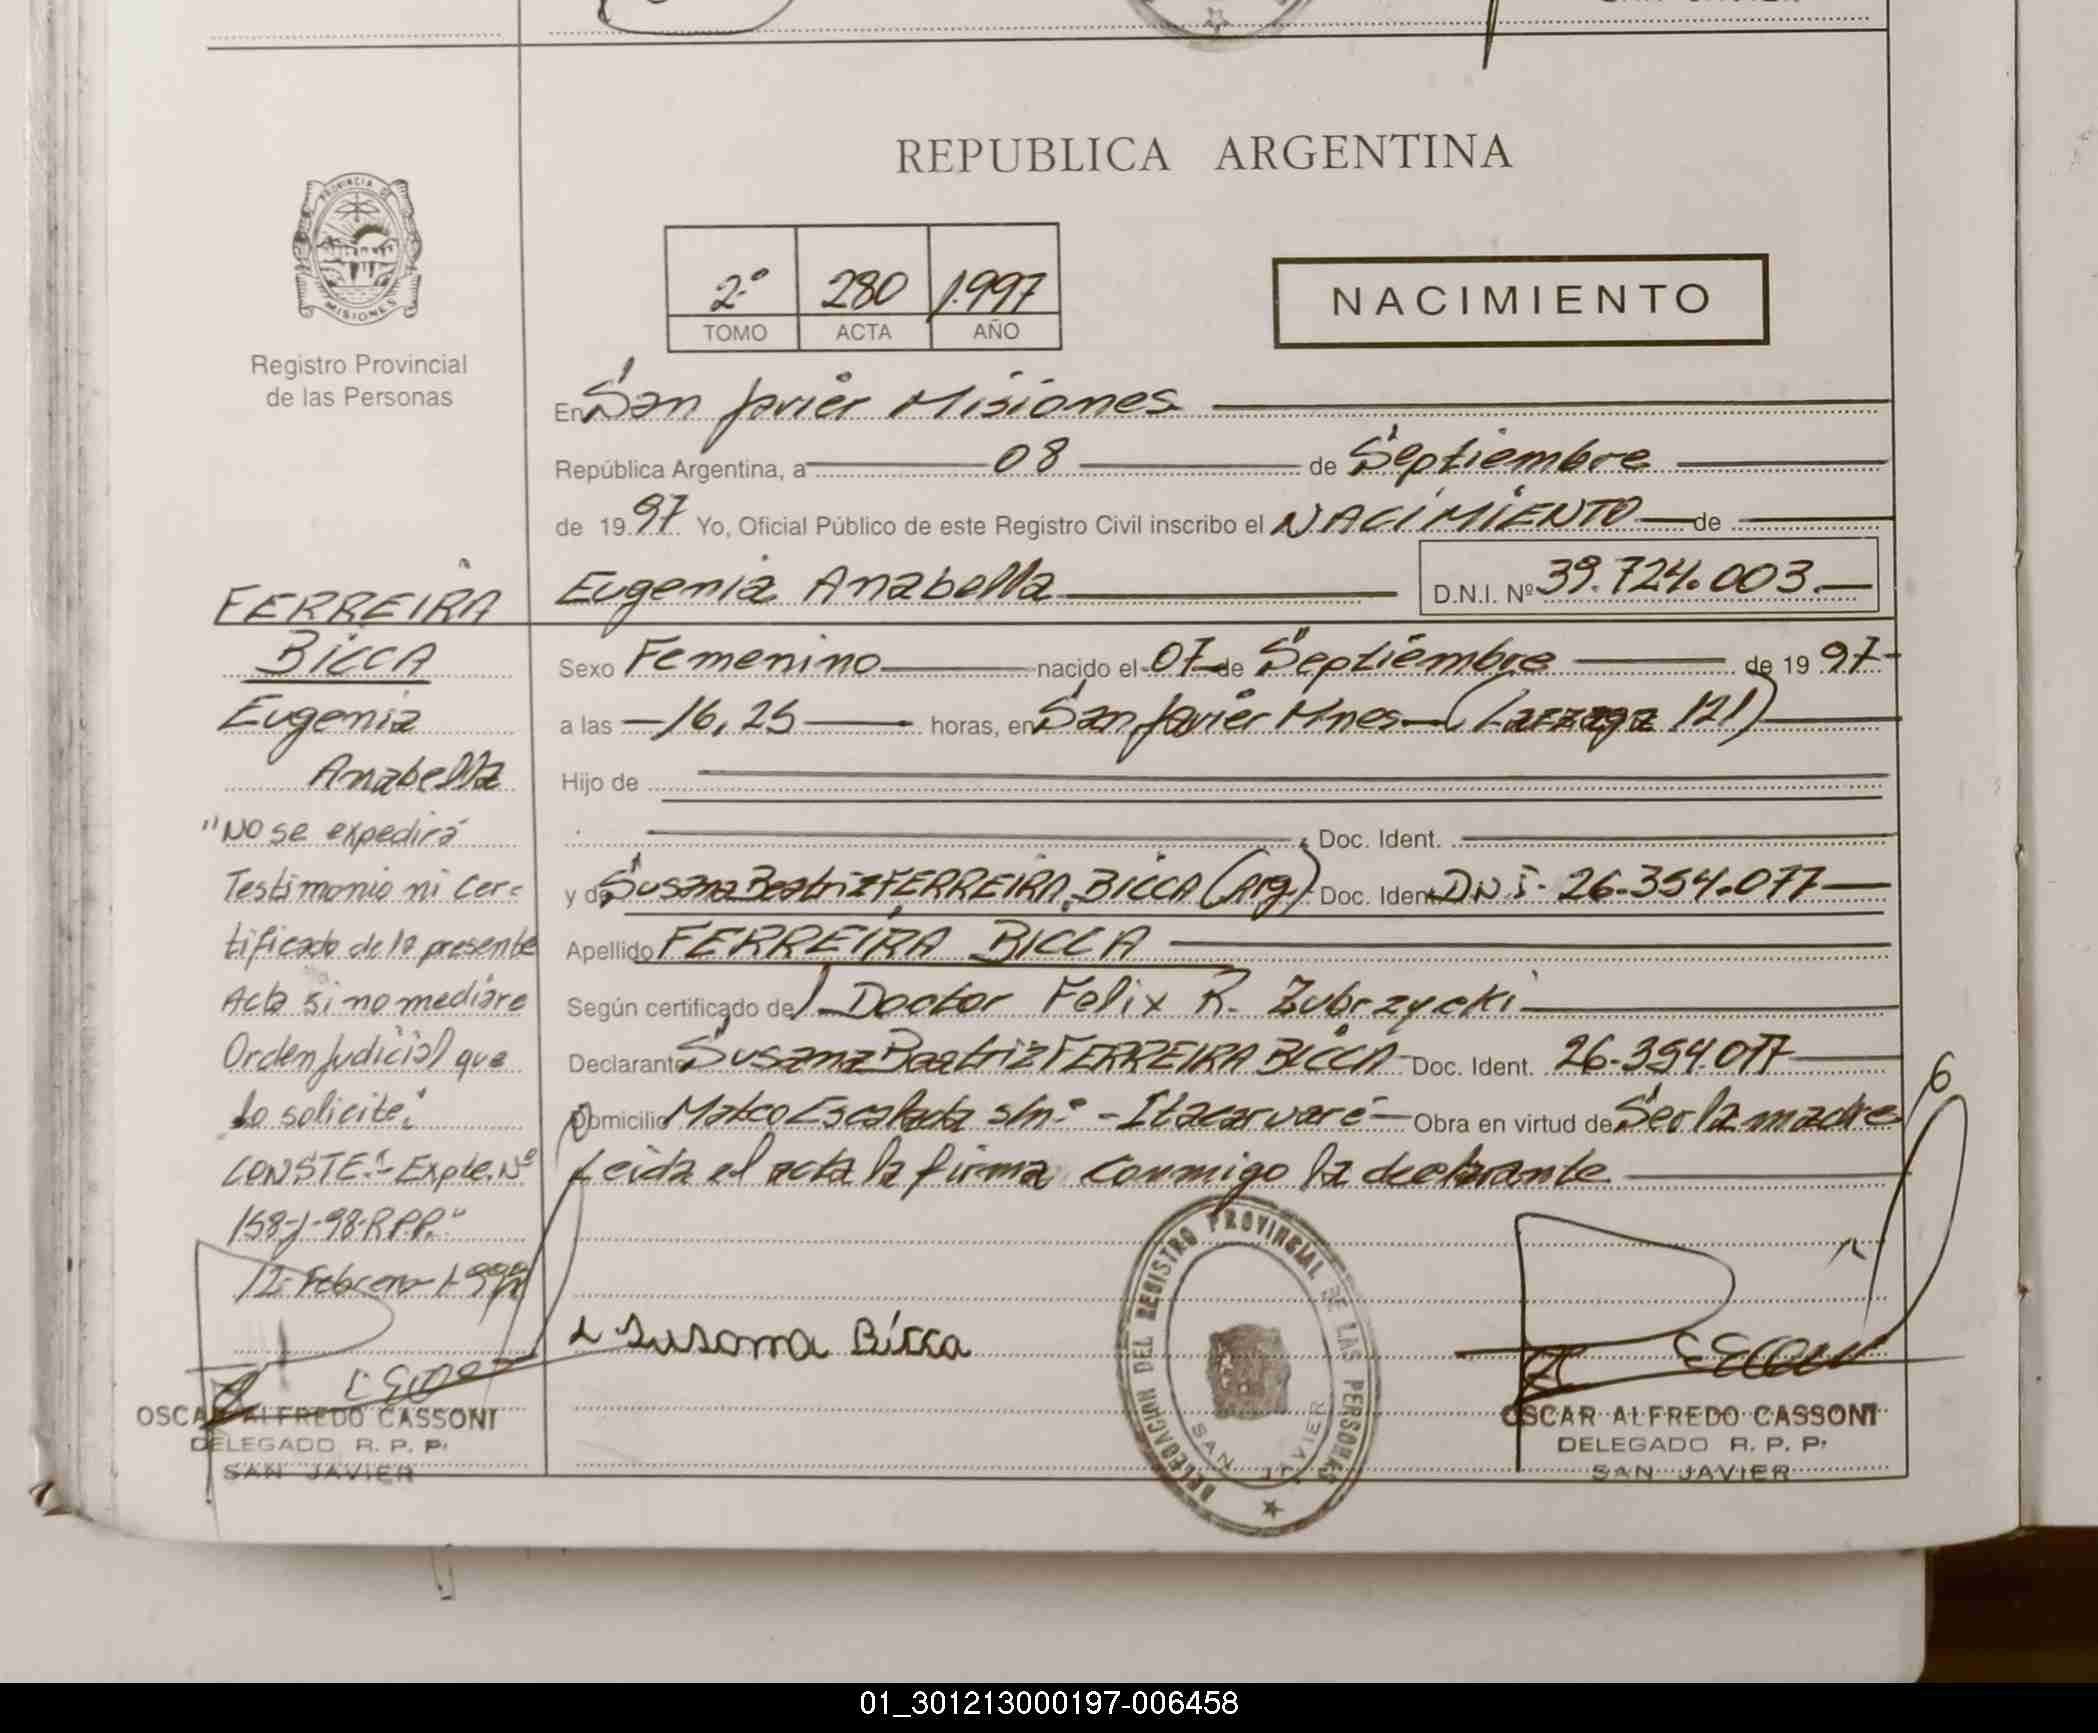 REPUBLICA ARGENTINA
PROVINCIA DE
MISIONES
Registro Provincial
de las Personas
2º 280 1.997
TOMO ACTA AÑO
NACIMIENTO
En San Javier Misiones
República Argentina, a 08 de Septiembre
de 19 97 Yo, Oficial Público de este Registro Civil inscribo el NACIMIENTO de
Eugenia Anabella D.N.I. Nº 39.724.003.
Sexo Femenino nacido el 07 de Septiembre de 19 97
a las 16,25 horas, en San Javier Mnes (121)
Hijo de
Doc. Ident.
y de Susana Beatriz FERREIRA BICCA (Arg) Doc. Ident DNI- 26.354.077
Apellido FERREIRA BICCA
Según certificado del Doctor Felix R. Zubrzycki
Declarante Susana Beatriz FERREIRA BICCA Doc. Ident. 26.354.077
Domicilio Mateo Escalada s/nº - Itacaruaré Obra en virtud de Ser la madre
Leida el acta la firma conmigo la declarante
Susana Bicca
FERREIRA
BICCA
Eugenia
Anabella
"No se expedirá
Testimonio ni Cer-
tificado de la presente
Acta si no mediare
Orden Judicial que
Lo solicite"
CONSTE- Expte. Nº
158-J-98-R.P.P."
12 Febrero
OSCAR ALFREDO CASSONI
DELEGADO R. P. P.
SAN JAVIER
DELEGACION DEL REGISTRO PROVINCIAL DE LAS PERSONAS
SAN JAVIER
OSCAR ALFREDO CASSONI
DELEGADO R. P. P.
SAN JAVIER
01_301213000197-006458